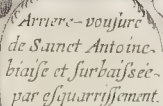 Arriere-vousure
de Sainct Antoine
biaise et surbaissée
par esquarrissement